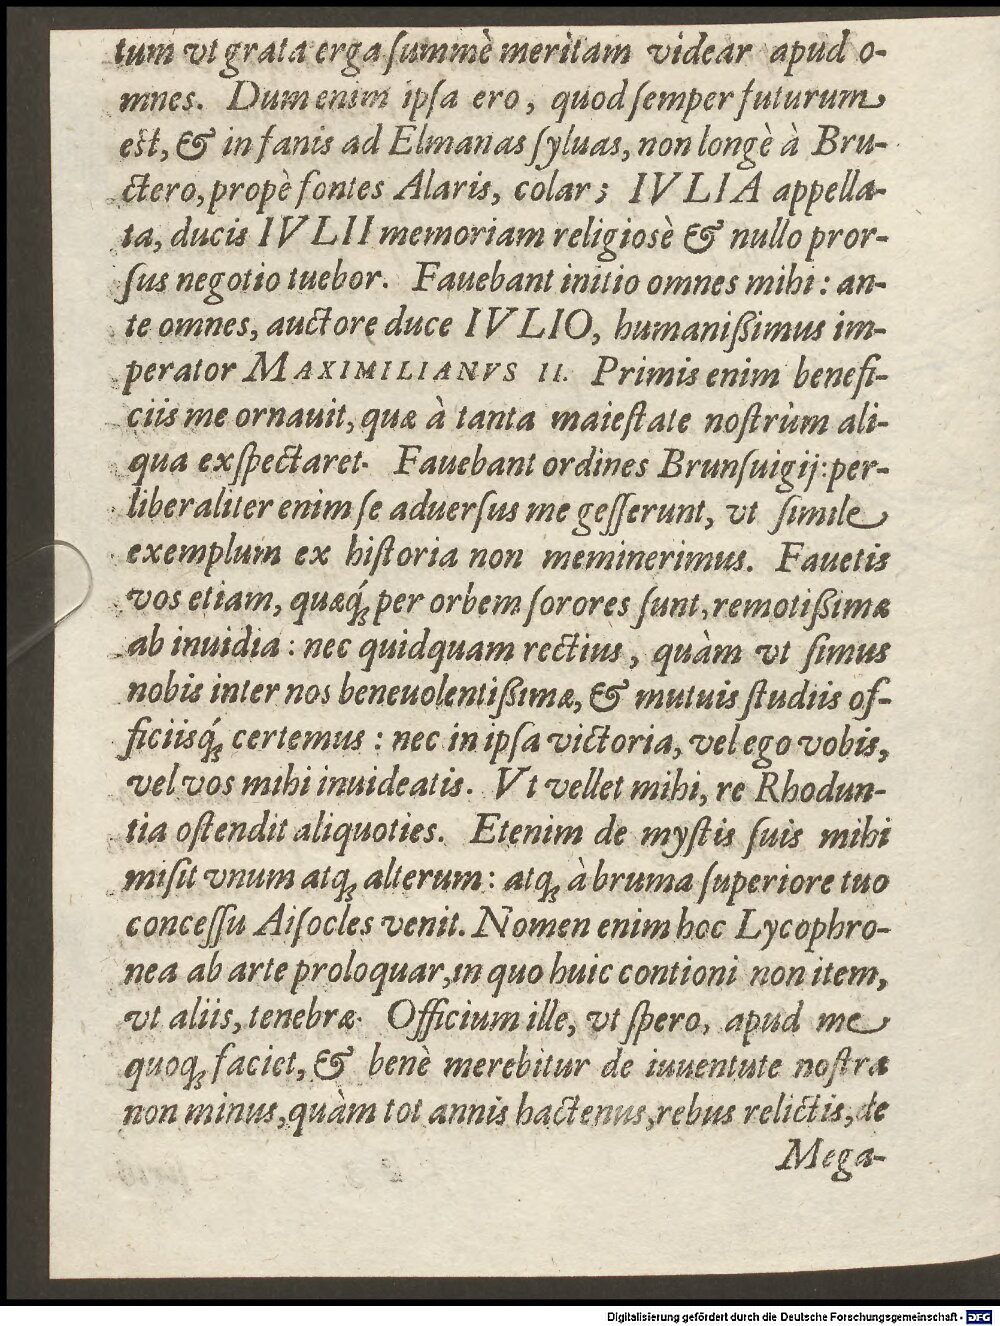 tum vt grata erga ſummè meritam videar apud o-
mnes. Dum enim ipſa ero, quod ſemper futurum
eſt, & in fanis ad Elmanas ſyluas, non longè à Bru-
ctero, propè fontes Alaris, colar; IVLIA appella-
ta, ducis IVLII memoriam religiosè & nullo pror-
ſus negotio tuebor. Fauebant initio omnes mihi: an-
te omnes, auctore duce IVLIO, humanißimus im-
perator MAXIMILIANVS II. Primis enim benefi-
ciis me ornauit, quæ à tanta maieſtate noſtrùm ali-
qua exſpectaret. Fauebant ordines Brunſuigij: per-
liberaliter enim ſe aduerſus me geſſerunt, vt ſimile
exemplum ex hiſtoria non meminerimus. Fauetis
vos etiam, quæq́; per orbem ſorores ſunt, remotißimæ
ab inuidia: nec quidquam rectius, quàm vt ſimus
nobis inter nos beneuolentißimæ, & mutuis ſtudiis of-
ficiisq́; certemus: nec in ipſa victoria, vel ego vobis,
vel vos mihi inuideatis. Vt vellet mihi, re Rhodun-
tia oſtendit aliquoties. Etenim de myſtis ſuis mihi
miſit vnum atq; alterum: atq; à bruma ſuperiore tuo
conceſſu Aiſocles venit. Nomen enim hoc Lycophro-
nea ab arte proloquar, in quo huic contioni non item,
vt aliis, tenebræ. Officium ille, vt ſpero, apud me
quoq; faciet, & benè merebitur de iuuentute noſtra
non minus, quàm tot annis hactenus, rebus relictis, de
Mega-
Digitalisierung gefördert durch die Deutsche Forschungsgemeinschaft - DFG